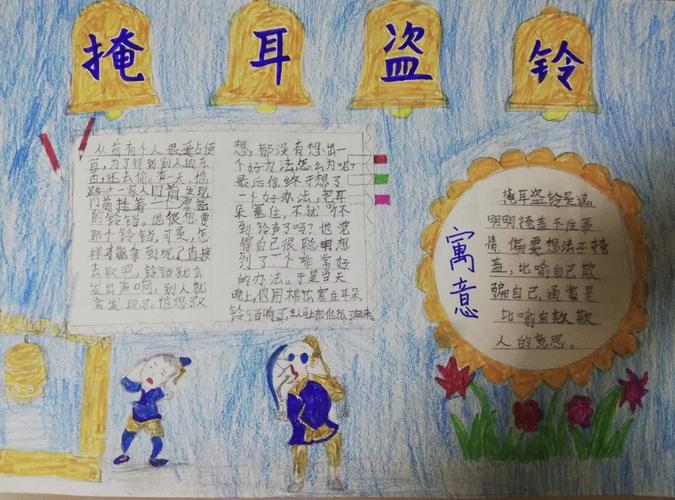 掩耳盗铃
从前有个人很爱占便
宜,为了得到别人的东
西,还去偷。有一天,他
路过一家人门前,发现
门前挂着一个漂亮
的铃铛。他很想要
那个铃铛,可是,怎
样才能拿到呢?直接
去取吧,铃铛就会
发出声响,别人就
会发现了。他想了又
想,都没有想出一
个好办法,怎么办呢?
最后他终于想了
一个好办法,把耳
朵塞住,不就听不
到铃声了吗?他觉
得自己很聪明想
到了一个非常好
的办法。于是当天
晚上,他用棉花塞在耳朵,
铃铛响了
寓意
掩耳盗铃是说,
明明掩盖不住事
情,偏要想法子掩
盖,比喻自己欺
骗自己,通常是
比喻自欺欺
人的意思。